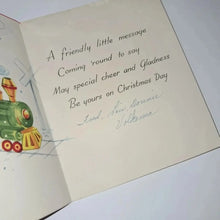 A friendly little message
Coming 'round to say
May special cheer and Gladness
Be yours on Christmas Day